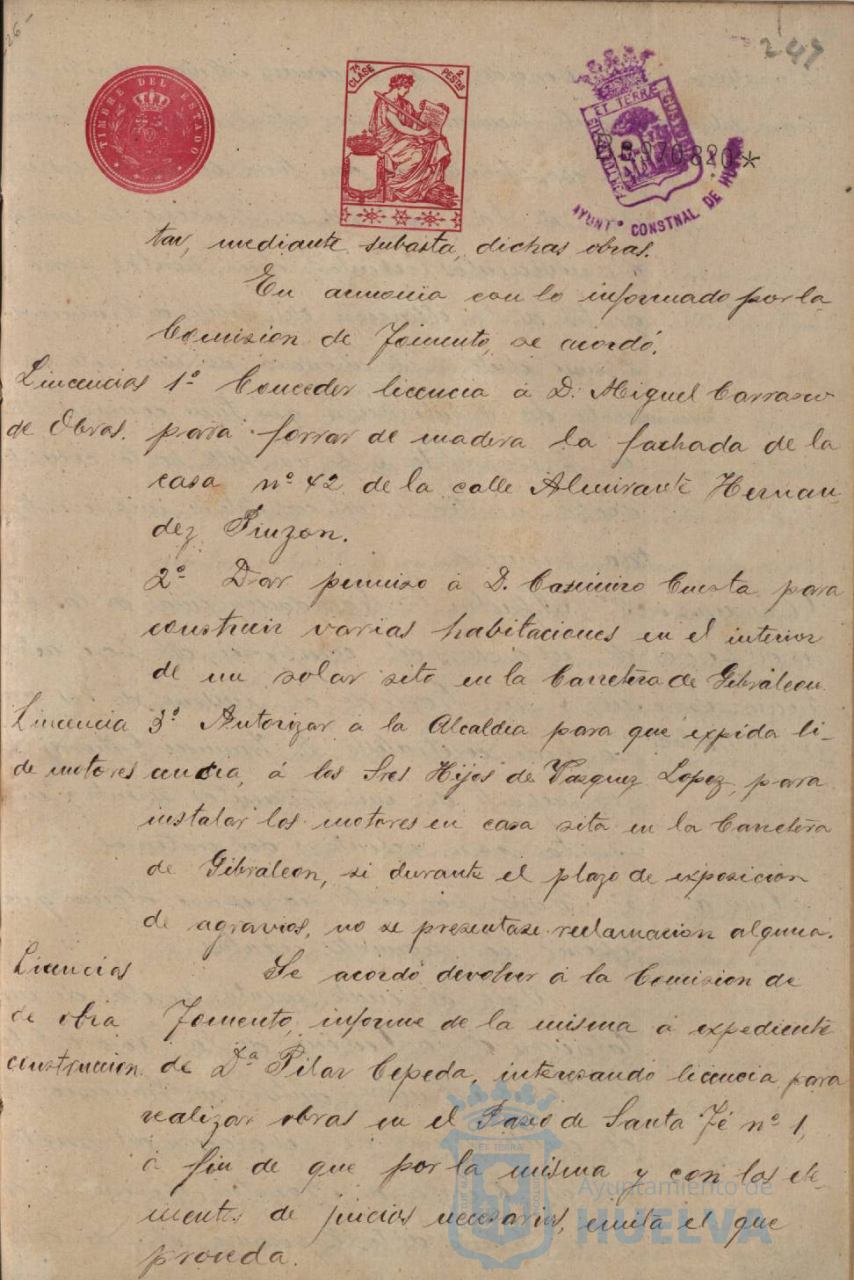 26-
247
TIMBRE DEL ESTADO
7ª CLASE
2 PESTAS
ET TERRÆ CUSTODIA
AYUNTº CONSTNAL DE HUELVA
B.8.270.820*
tar, mediante subasta, dichas obras.
En armonia con lo informado por la
Comision de Fomento, se acordó.
Lincencias
de Obras.
1º Conceder licencia á D. Miguel Carrasco
para forrar de madera la fachada de la
casa nº 42 de la calle Almirante Hernan-
dez Pinzon.
2º Dar permiso á D. Casimiro Cuesta para
construir varias habitaciones en el interior
de un solar sito en la Carretera de Gibraleon.
Lincencia
de motores
3º Autorizar a la Alcaldia para que expida li-
cencia, á los Sres Hijos de Vazquez Lopez, para
instalar los motores en casa sita en la Carretera
de Gibraleon, si durante el plazo de exposicion
de agravios, no se presentase reclamacion alguna.
Licencias
de obra
construccion
Se acordó devolver á la Comision de
Fomento, informe de la misma á expediente
de Dª Pilar Cepeda, interesando licencia para
realizar obras en el Paseo de Santa Fé nº 1,
á fin de que por la misma y con los ele-
mentos de juicios necesarios, emita el que
proceda.
Ayuntamiento de
HUELVA